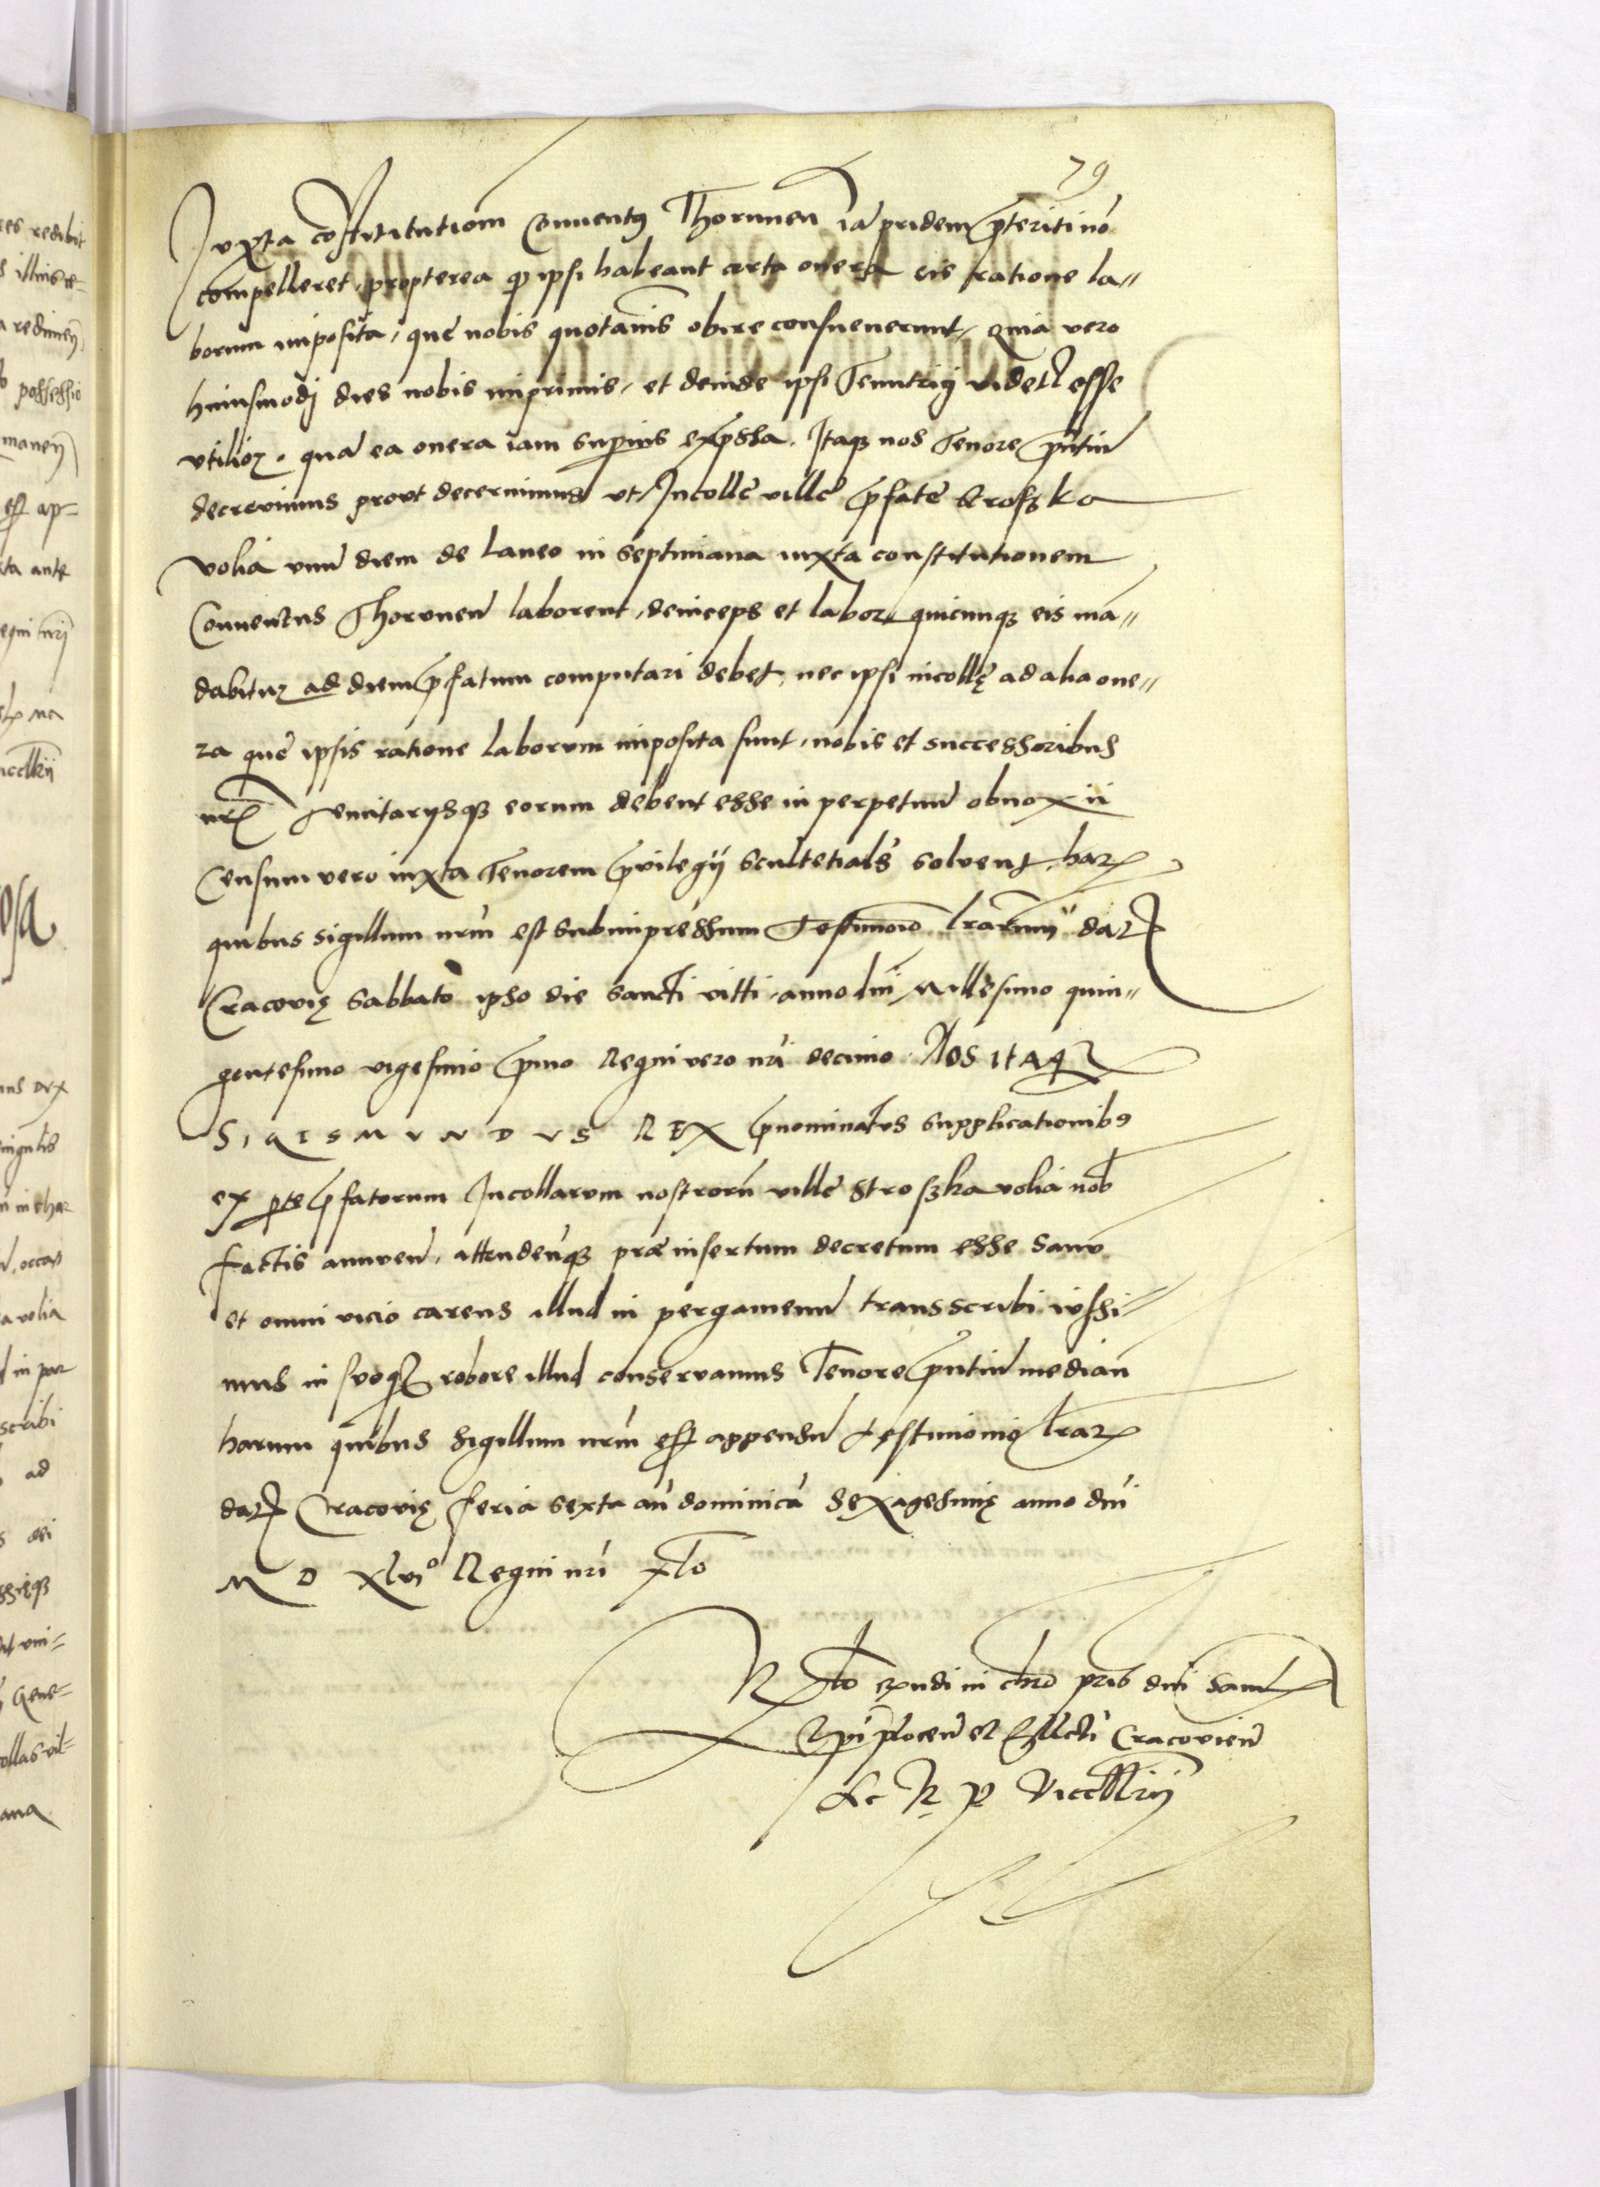 79
Iuxta constitutiom Conuentus Thorunen̄ iā pridem p̄teriti nō
compelleret, propterea qđ ipsi habeant certa onera eis ratione la=
borum imposita, que nobis quotannis obire consueuerunt, Quia vero
huiusmodi dies nobis imprimis, et deinde ipsi Tenutarij videtur esse
vtilior, quā ea onera iam superius exp̄ssa. Itaq3 nos Tenore p̄ntiū
decreuimus prout decernimus vt Incolle ville p̄fate Stroszka
volia vnū diem de Laneo in septimana iuxta constitutionem
Conuentus Thorunen̄ laborent, deinceps et labor quicunq3 eis mā=
dabitur ad diem p̄fatum computari debet, nec ipsi incollę ad alia one=
ra que ipsis ratione laborum imposita sunt, nobis et successoribus
nr̄is Tenutarijsq3 eorum debent esse in perpetuū obnoxii
Censum vero iuxta Tenorem p̄uilegij scultetialis solvent, har
quibus sigillum nr̄m est subimpressum Testimonio lr̄arum dat
Cracovię sabbato ipso die sancti vitti, anno dn̄i Millesimo quin=
gentesimo vigesimo p̄mo Regni vero nr̄i decimo. NOS ITAQ3
SIGISMVNDVS REX p̄nominatus supplicationibus
ex parte p̄fatorum Incollarum nostrorū ville Stroszka volia nob̄
factis annuen̄, attenden̄q3 præinsertum decretum esse sanū
et omni vicio carens illud in pergamenū transscribi iussi=
mus in suoq3 robore illud conservamus Tenore p̄ntiū median̄
harum quibus sigillum nr̄m est appensū testimonio lr̄ar
dat Cracovię feria sexta an̄ dominicā sexagesimę anno dn̄i
M D xlvi° Regni nr̄i xl̄o
Rl̄o Rn̄di in chro pr̄is dn̄i Sam
Ep̄i plocen̄ et Ell̄cti Cracovien̄
&c R. P. Vicecllrij